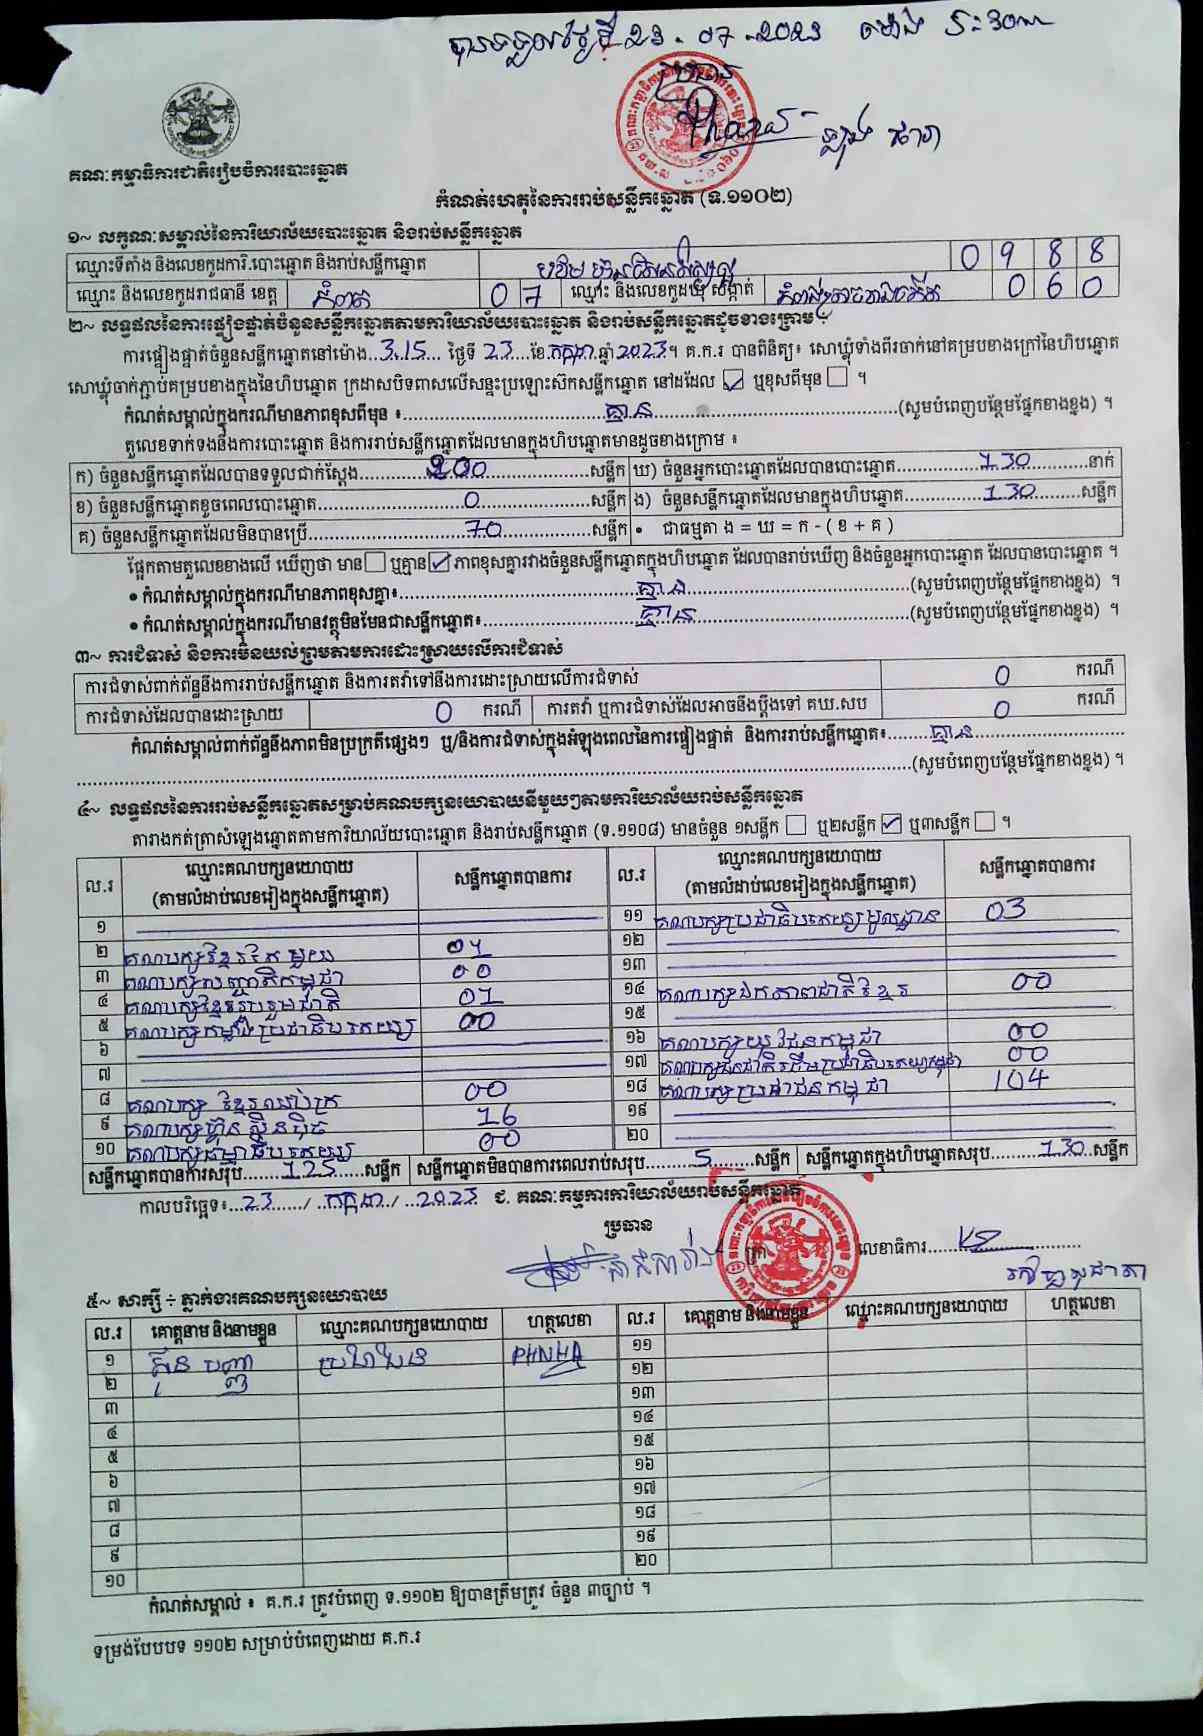 បានទទួលថ្ងៃទី 23-07-2023 ម៉ោង 5:30
ប្រធាន
គណៈកម្មាធិការជាតិរៀបចំការបោះឆ្នោត
កំណត់ហេតុនៃការរាប់សន្លឹកឆ្នោត (ទ.១១០២)
១~ លក្ខណៈសម្គាល់នៃការិយាល័យបោះឆ្នោត និងរាប់សន្លឹកឆ្នោត
ឈ្មោះទីតាំង និងលេខកូដការិ.បោះឆ្នោត និងរាប់សន្លឹកឆ្នោត 0 9 8 8
ឈ្មោះ និងលេខកូដរាជធានី ខេត្ត កំពត 0 7 ឈ្មោះ និងលេខកូដឃុំ សង្កាត់ 0 6 0
២~ លទ្ធផលនៃការផ្ទៀងផ្ទាត់ចំនួនសន្លឹកឆ្នោតតាមការិយាល័យបោះឆ្នោត និងរាប់សន្លឹកឆ្នោតដូចខាងក្រោម ៖
ការផ្ទៀងផ្ទាត់ចំនួនសន្លឹកឆ្នោតនៅម៉ោង 3.15 ថ្ងៃទី 23 ខែ កក្កដា ឆ្នាំ 2023 ។ គ.ក.រ បានពិនិត្យ៖ សោឃ្លុំទាំងពីរចាក់នៅគម្របខាងក្រៅនៃហិបឆ្នោត
សោឃ្លុំចាក់ភ្ជាប់គម្របខាងក្នុងនៃហិបឆ្នោត ក្រដាសបិទពាសលើសន្ទះប្រឡោះស៊កសន្លឹកឆ្នោត នៅដដែល ☑ ឬខុសពីមុន ☐ ។
កំណត់សម្គាល់ក្នុងករណីមានភាពខុសពីមុន ៖ គ្មាន (សូមបំពេញបន្ថែមផ្នែកខាងខ្នង) ។
តួលេខទាក់ទងនឹងការបោះឆ្នោត និងការរាប់សន្លឹកឆ្នោតដែលមានក្នុងហិបឆ្នោតមានដូចខាងក្រោម ៖
ក) ចំនួនសន្លឹកឆ្នោតដែលបានទទួលជាក់ស្តែង 200 សន្លឹក ឃ) ចំនួនអ្នកបោះឆ្នោតដែលបានបោះឆ្នោត 130 នាក់
ខ) ចំនួនសន្លឹកឆ្នោតខូចពេលបោះឆ្នោត 0 សន្លឹក ង) ចំនួនសន្លឹកឆ្នោតដែលមានក្នុងហិបឆ្នោត 130 សន្លឹក
គ) ចំនួនសន្លឹកឆ្នោតដែលមិនបានប្រើ 70 សន្លឹក • ជាធម្មតា ង = ឃ = ក - ( ខ + គ )
ផ្អែកតាមតួលេខខាងលើ ឃើញថា មាន ☐ ឬគ្មាន ☑ ភាពខុសគ្នារវាងចំនួនសន្លឹកឆ្នោតក្នុងហិបឆ្នោត ដែលបានរាប់ឃើញ និងចំនួនអ្នកបោះឆ្នោត ដែលបានបោះឆ្នោត ។
• កំណត់សម្គាល់ក្នុងករណីមានភាពខុសគ្នា៖ គ្មាន (សូមបំពេញបន្ថែមផ្នែកខាងខ្នង) ។
• កំណត់សម្គាល់ក្នុងករណីមានវត្ថុមិនមែនជាសន្លឹកឆ្នោត៖ គ្មាន (សូមបំពេញបន្ថែមផ្នែកខាងខ្នង) ។
៣~ ការជំទាស់ និងការមិនយល់ព្រមតាមការដោះស្រាយលើការជំទាស់
ការជំទាស់ពាក់ព័ន្ធនឹងការរាប់សន្លឹកឆ្នោត និងការតវ៉ាទៅនឹងការដោះស្រាយលើការជំទាស់ 0 ករណី
ការជំទាស់ដែលបានដោះស្រាយ 0 ករណី ការតវ៉ា ឬការជំទាស់ដែលអាចនឹងប្តឹងទៅ គឃ.សប 0 ករណី
កំណត់សម្គាល់ពាក់ព័ន្ធនឹងភាពមិនប្រក្រតីផ្សេងៗ ឬ/និងការជំទាស់ក្នុងអំឡុងពេលនៃការផ្ទៀងផ្ទាត់ និងការរាប់សន្លឹកឆ្នោត៖ គ្មាន
(សូមបំពេញបន្ថែមផ្នែកខាងខ្នង) ។
៤~ លទ្ធផលនៃការរាប់សន្លឹកឆ្នោតសម្រាប់គណបក្សនយោបាយនីមួយៗតាមការិយាល័យរាប់សន្លឹកឆ្នោត
តារាងកត់ត្រាសំឡេងឆ្នោតតាមការិយាល័យបោះឆ្នោត និងរាប់សន្លឹកឆ្នោត (ទ.១១០៨) មានចំនួន ១សន្លឹក ☐ ឬ២សន្លឹក ☑ ឬ៣សន្លឹក ☐ ។
ល.រ ឈ្មោះគណបក្សនយោបាយ (តាមលំដាប់លេខរៀងក្នុងសន្លឹកឆ្នោត) សន្លឹកឆ្នោតបានការ ល.រ ឈ្មោះគណបក្សនយោបាយ (តាមលំដាប់លេខរៀងក្នុងសន្លឹកឆ្នោត) សន្លឹកឆ្នោតបានការ
១ ១១ គណបក្សប្រជាធិបតេយ្យមូលដ្ឋាន 03
២ គណបក្សខ្មែរតែមួយ 01 ១២
៣ គណបក្សសញ្ជាតិកម្ពុជា 00 ១៣
៤ គណបក្សខ្មែររួបរួមជាតិ 01 ១៤ គណបក្សឯកភាពជាតិខ្មែរ 00
៥ គណបក្សកម្លាំងប្រជាធិបតេយ្យ 00 ១៥
៦ ១៦ គណបក្សយុវជនកម្ពុជា 00
៧ ១៧ គណបក្សជនជាតិដើមប្រជាធិបតេយ្យកម្ពុជា 00
៨ គណបក្ស ខ្មែរឈប់ក្រ 00 ១៨ គណបក្សប្រជាជនកម្ពុជា 104
៩ គណបក្សហ៊្វុនស៊ិនប៉ិច 16 ១៩
១០ គណបក្សធម្មាធិបតេយ្យ 00 ២០
សន្លឹកឆ្នោតបានការសរុប 125 សន្លឹក សន្លឹកឆ្នោតមិនបានការពេលរាប់សរុប 5 សន្លឹក សន្លឹកឆ្នោតក្នុងហិបឆ្នោតសរុប 130 សន្លឹក
កាលបរិច្ឆេទ៖ 23 / កក្កដា / 2023 ជ. គណៈកម្មការការិយាល័យរាប់សន្លឹកឆ្នោត
ប្រធាន
លេខាធិការ
៥~ សាក្សី ÷ ភ្នាក់ងារគណបក្សនយោបាយ
ល.រ គោត្តនាម និងនាមខ្លួន ឈ្មោះគណបក្សនយោបាយ ហត្ថលេខា ល.រ គោត្តនាម និងនាមខ្លួន ឈ្មោះគណបក្សនយោបាយ ហត្ថលេខា
១ ប្រជាជន PHNHA ១១
២ ១២
៣ ១៣
៤ ១៤
៥ ១៥
៦ ១៦
៧ ១៧
៨ ១៨
៩ ១៩
១០ ២០
កំណត់សម្គាល់ ៖ គ.ក.រ ត្រូវបំពេញ ទ.១១០២ ឱ្យបានត្រឹមត្រូវ ចំនួន ៣ច្បាប់ ។
ទម្រង់បែបបទ ១១០២ សម្រាប់បំពេញដោយ គ.ក.រ